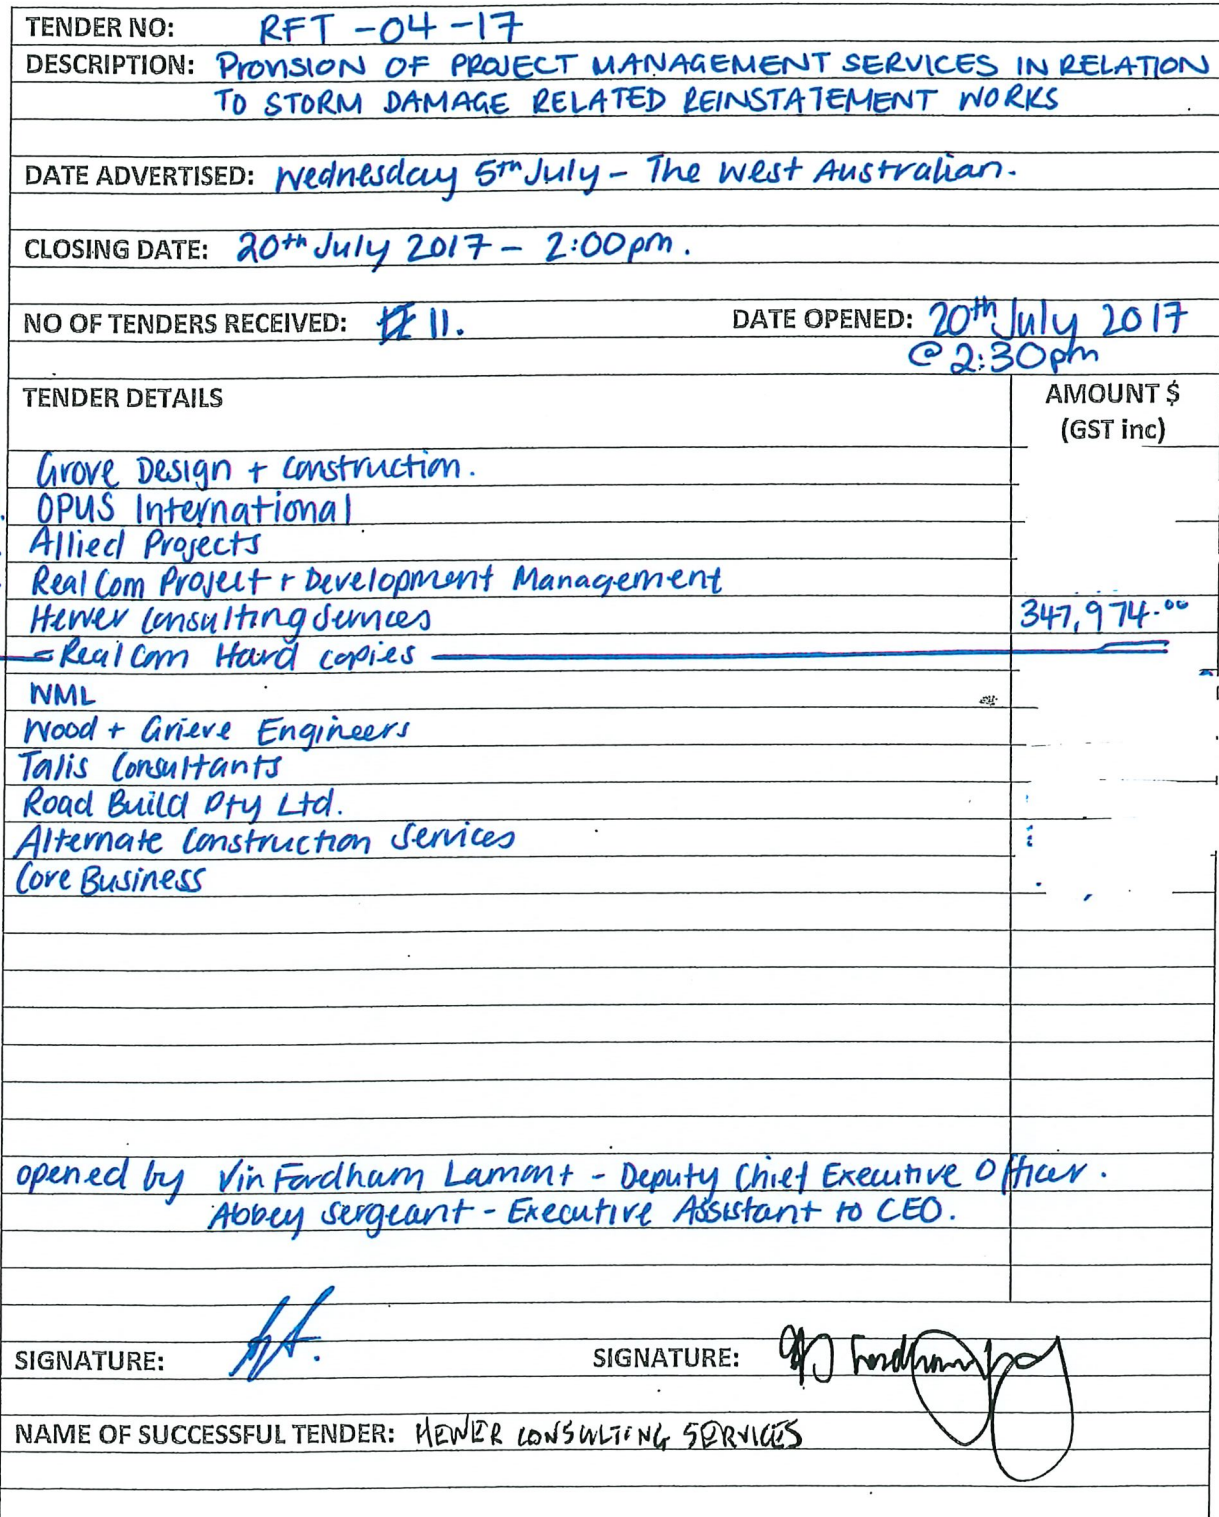 TENDER NO: RFT -04 -17
DESCRIPTION: Provision OF PROJECT MANAGEMENT SERVICES IN RELATION
TO STORM DAMAGE RELATED REINSTATEMENT WORKS
DATE ADVERTISED: Wednesday 5th July - The West Australian.
CLOSING DATE: 20th July 2017 - 2:00pm.
NO OF TENDERS RECEIVED: 11. DATE OPENED: 20th July 2017
@ 2:30pm
TENDER DETAILS AMOUNT $
(GST inc)
Grove Design + Construction.
OPUS International
Allied Projects
RealCom Project + Development Management
Hewer Consulting Services 347,974.00
RealCom Hard copies
WML
Wood + Grieve Engineers
Talis Consultants
Road Build Pty Ltd.
Alternate Construction Services
Core Business
opened by Vin Fordham Lamont - Deputy Chief Executive Officer.
Abbey Sergeant - Executive Assistant to CEO.
SIGNATURE: SIGNATURE:
NAME OF SUCCESSFUL TENDER: HEWER CONSULTING SERVICES